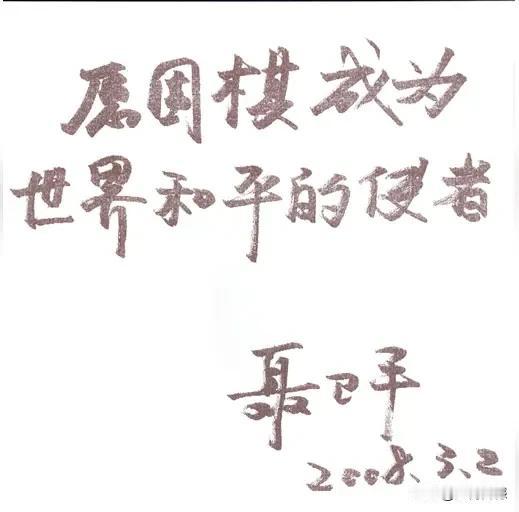 愿围棋成为
世界和平的使者
聂卫平
2008.3.2